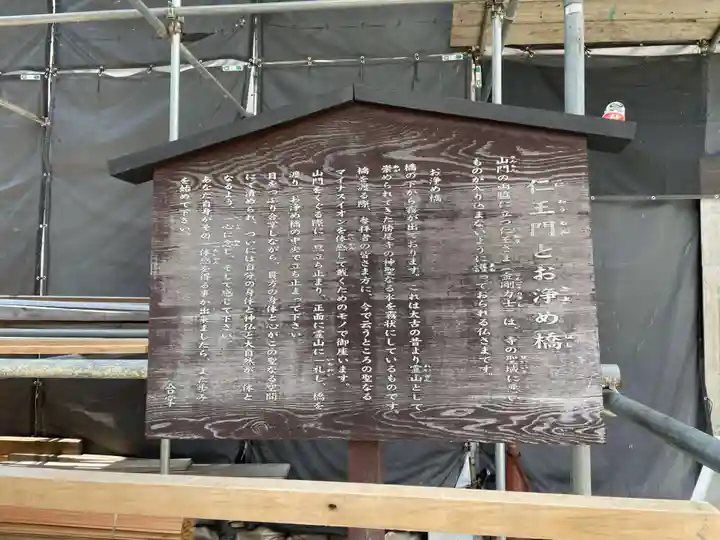 仁王門とお浄め橋
山門の両脇に立つ仁王さま(金剛力士)は、寺の聖域に悪い
ものが入りこまないように護っておられる仏さまです。
お浄め橋
橋の下から霧が出ております。これは太古の昔より霊山として
崇められてきた勝尾寺の神聖なる水を霧状にしているものです。
橋を渡る際、参拝者の皆さま方に、今で云うところの聖なる
マイナスイオンを体感して戴くためのモノで御座います。
山門をくぐる際に一旦立ち止まり、正面に霊山に一礼し、橋を
渡り、お浄め橋の中央で立ち止まって下さい。
目をつぶり合掌しながら、貴方の身体と心がこの聖なる空間
にて浄められ、ついには自分の身体と神仏の大自然が一体と
なるよう、一心に念じ、そして感じて下さい。
あなた自身がその一体感を得る事が出来ましたら、また歩み
を始めて下さい。
合掌